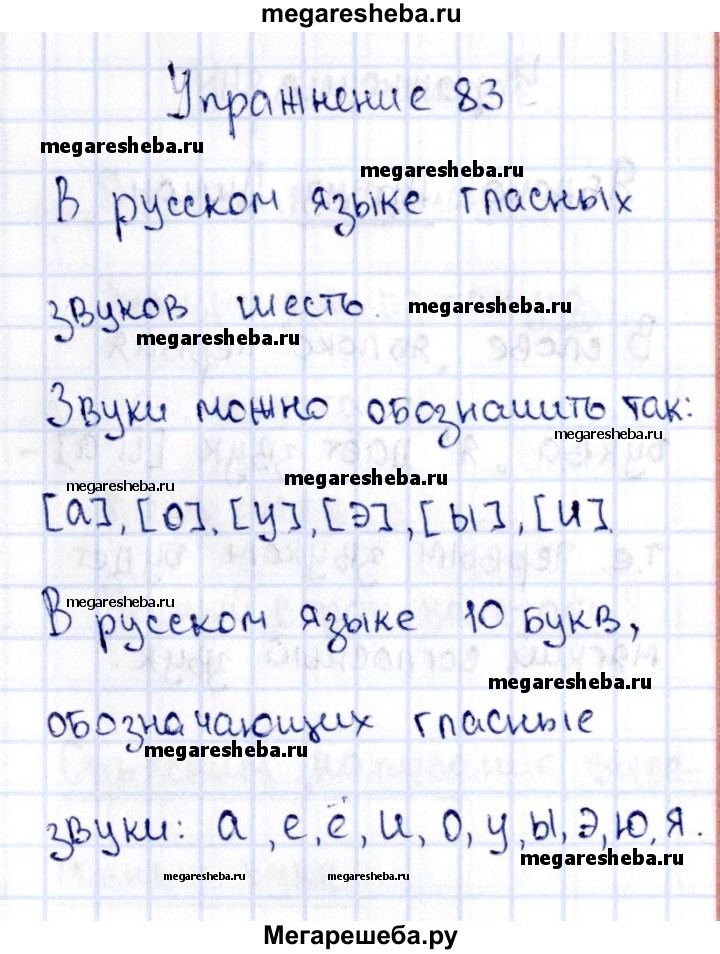 megaresheba.ru
Упражнение 83
megaresheba.ru
megaresheba.ru
В русском языке гласных
звуков шесть.
megaresheba.ru
megaresheba.ru
Звуки можно обозначить так:
megaresheba.ru
megaresheba.ru
megaresheba.ru
[а], [о], [у], [э], [ы], [и].
megaresheba.ru
megaresheba.ru
В русском языке 10 букв,
megaresheba.ru
обозначающих гласные
megaresheba.ru
звуки: а, е, ё, и, о, у, ы, э, ю, я.
megaresheba.ru
megaresheba.ru
megaresheba.ru
Мегарешеба.ру